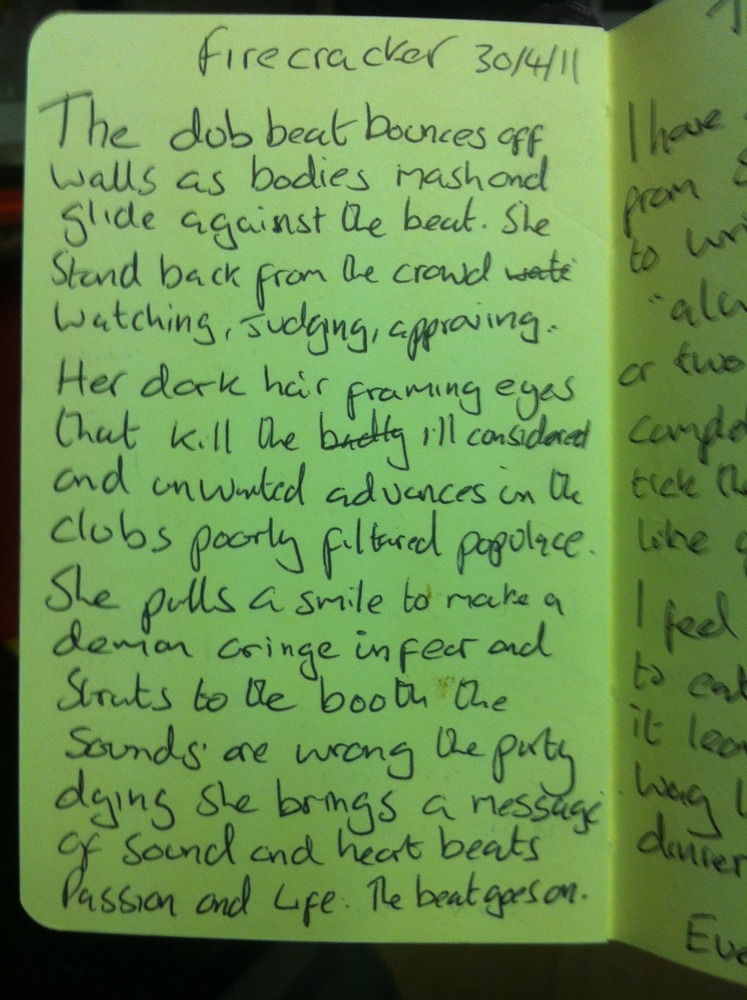 Firecracker 30/4/11
The dub beat bounces off
walls as bodies mash and
glide against the beat. She
stand back from the crowd wate
watching, judging, approving.
Her dark hair framing eyes
that kill the badly ill considered
and unwanted advances in the
clubs poorly filtured populace.
She pulls a smile to make a
demon cringe in fear and
struts to the booth the
sounds are wrong the party
dying she brings a message
of sound and heart beats
Passion and Life. The beat goes on.
I have
from
to
or two
tick the
like
I feel
to eat
it
way
dinner